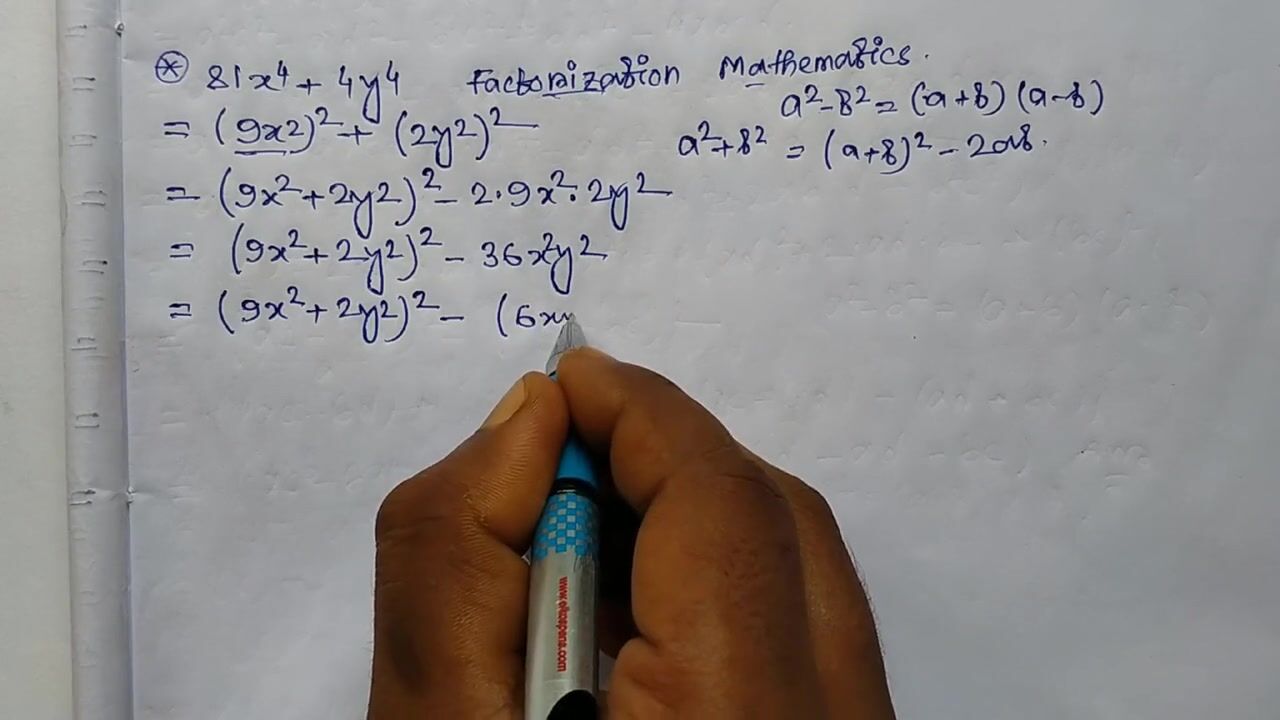 ⊛ 81x⁴ + 4y⁴ Factorization Mathematics.
a² - b² = (a+b) (a-b)
= (9x²)² + (2y²)²
a² + b² = (a+b)² - 2ab.
= (9x² + 2y²)² - 2·9x²·2y²
= (9x² + 2y²)² - 36x²y²
= (9x² + 2y²)² - (6xy